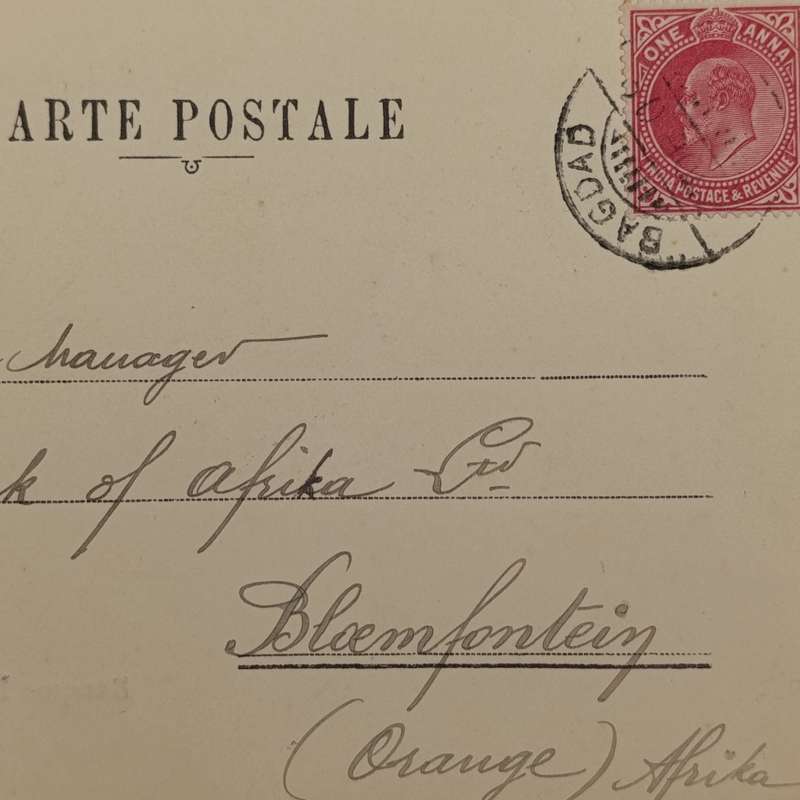 ARTE POSTALE
ONE ANNA
INDIA POSTAGE & REVENUE
BAGDAD
Manager
k of Afrika Ltd
Bloemfontein
(Orange) Afrika